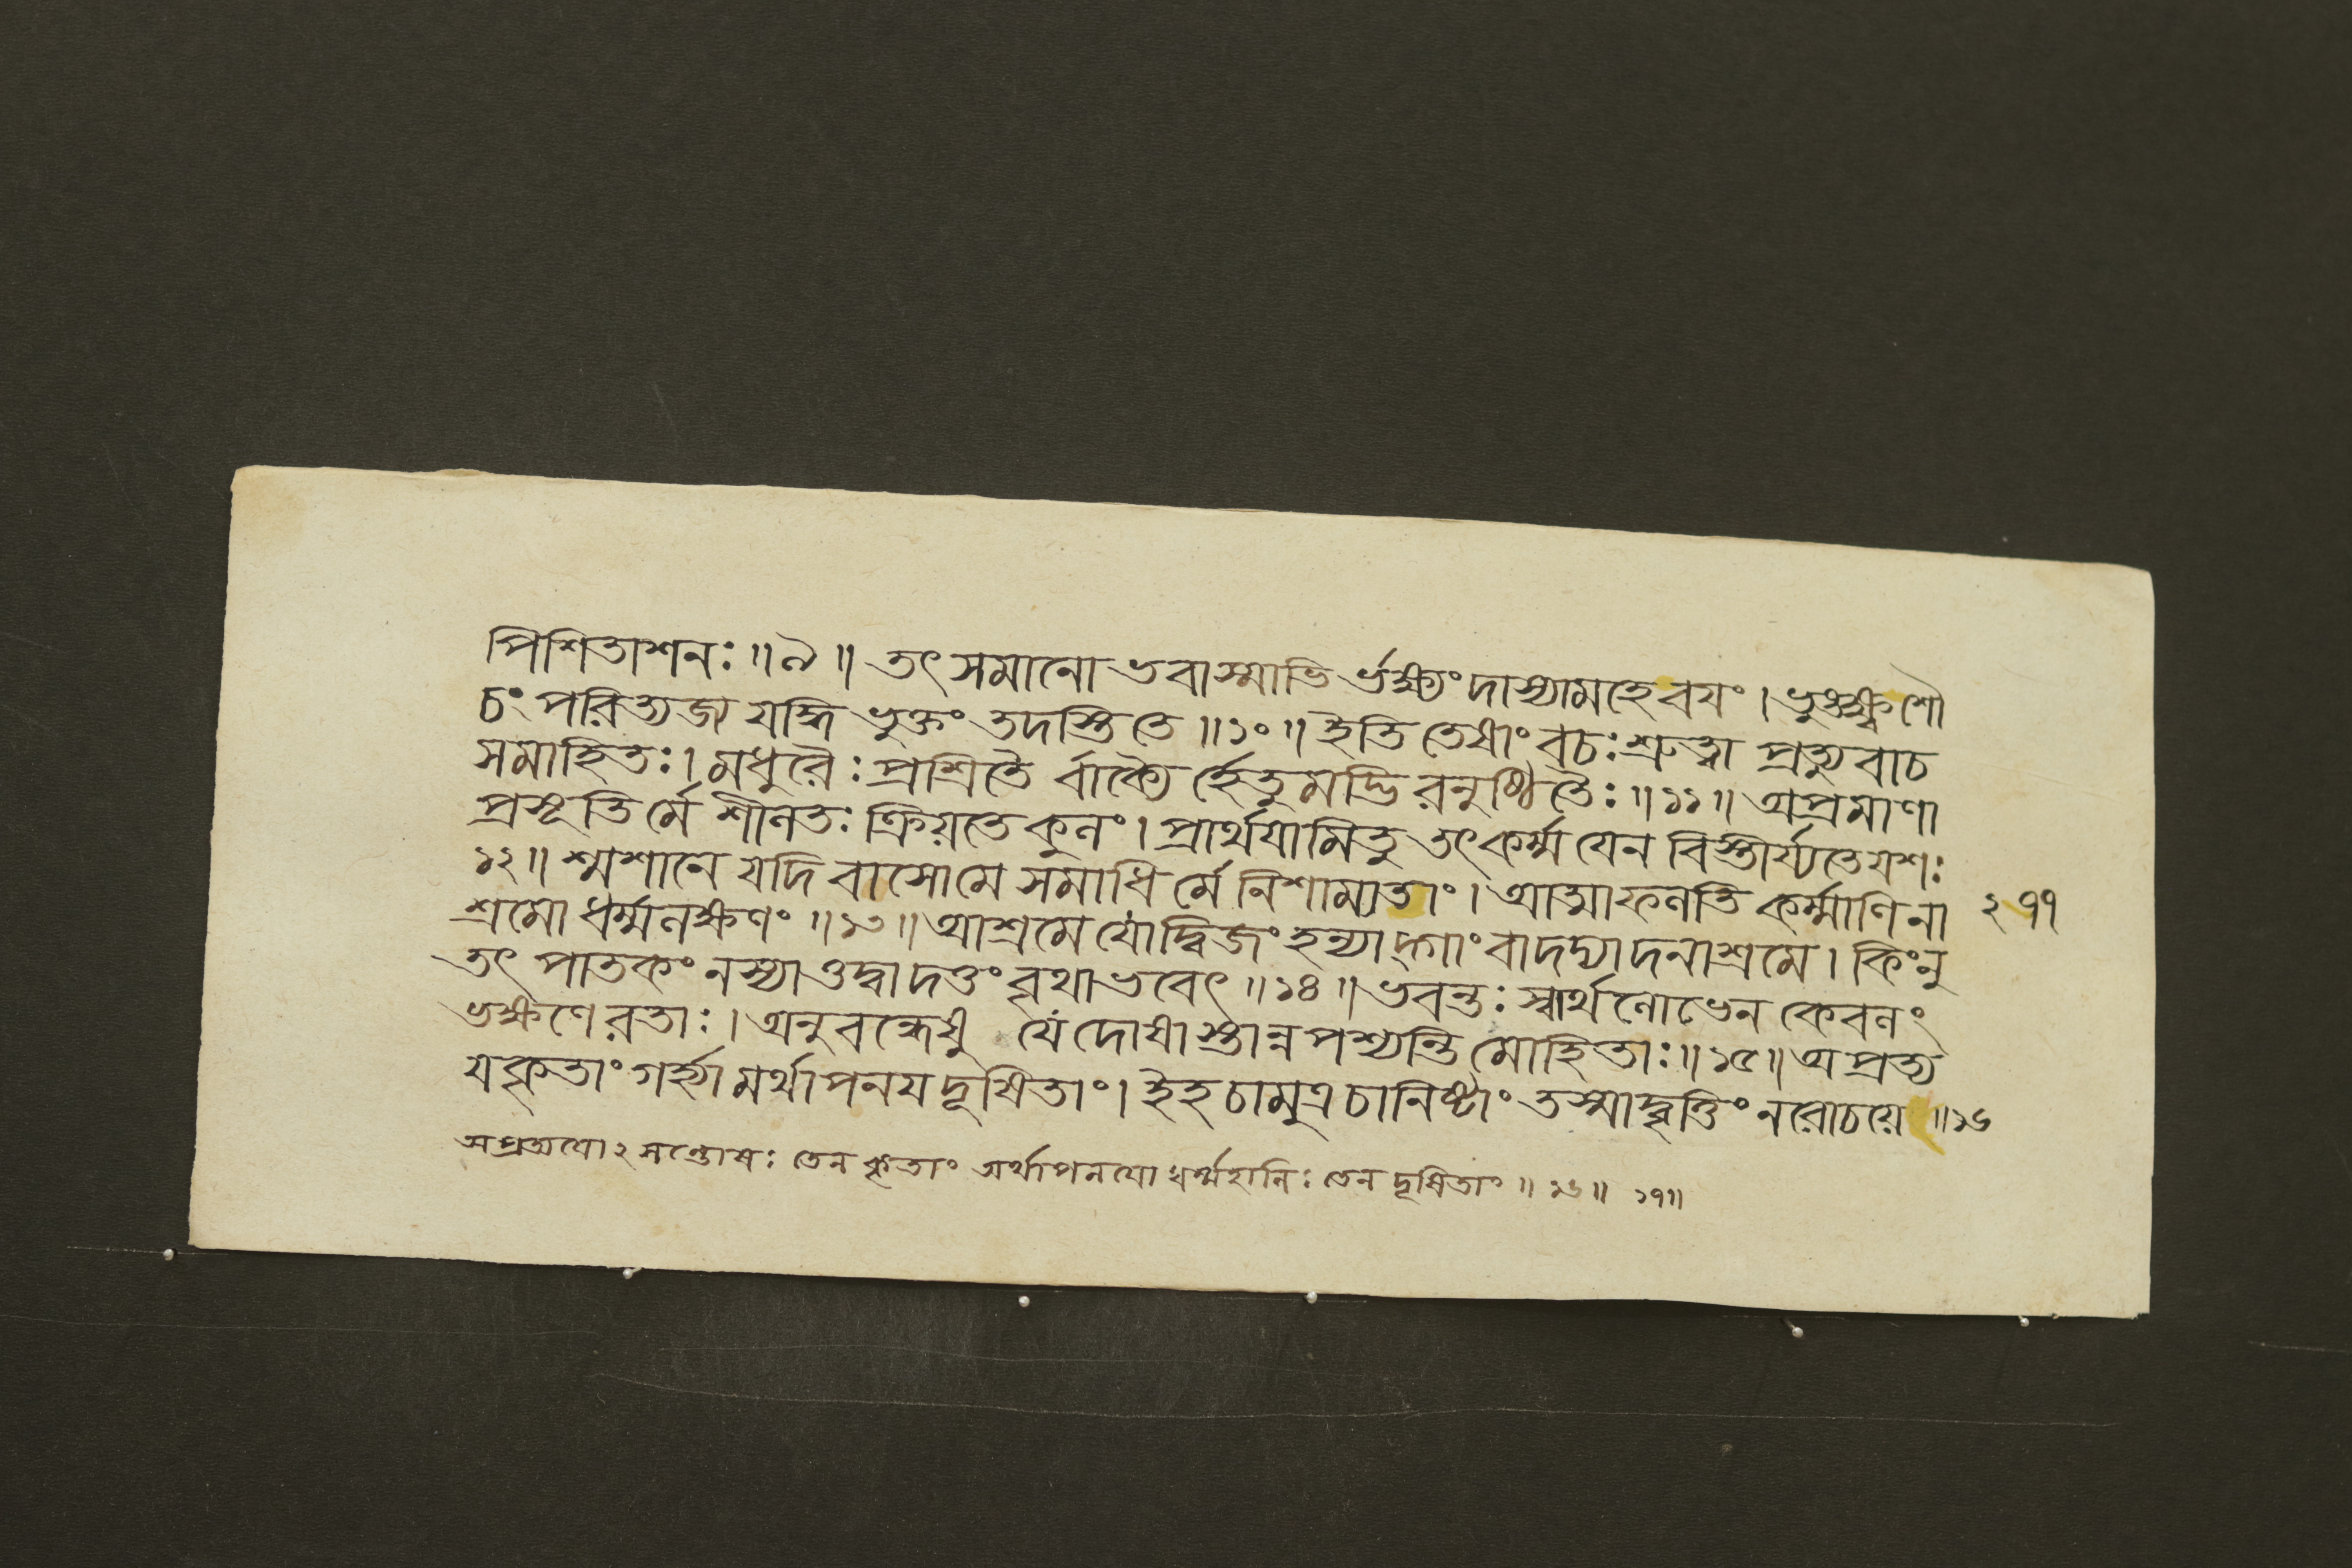 পিশিতাশনঃ ॥ ৯ ॥ তৎ সমানো ভবাস্মাভি র্ভক্ষ্যং দাস্যামহে বযং । ভুঙ্ক্ষ্ব শৌ
চং পরিত্যজ্য যদ্ধি ভুক্তং তদস্তি তে ॥ ১০ ॥ ইতি তেষাং বচঃ শ্রুত্বা প্রত্যুবাচ
সমাহিতঃ । মধুরৈঃ প্রশ্রিতৈ র্বাক্যৈ র্হেতুমদ্ভি রনুষ্ঠিতৈঃ ॥ ১১ ॥ অপ্রমাণা
প্রসূতি র্মে শীলতঃ ক্রিয়তে কুলং । প্রার্থযামি তু তৎ কর্ম্ম যেন বিস্তীর্য্যতে যশঃ
১২ ॥ শ্মশানে যদি বাসো মে সমাধি র্মে নিশাম্যতাং । আত্মা ফলতি কর্ম্মাণি না ২৭৭
শ্রমো ধর্ম্মলক্ষণং ॥ ১৩ ॥ আশ্রমে যো দ্বিজং হন্যাদ্গাং বা দদ্যাদনাশ্রমে । কিং নু
তৎ পাতকং ন স্যাত্তদ্বা দত্তং বৃথা ভবেৎ ॥ ১৪ ॥ ভবন্তঃ স্বার্থলোভেন কেবলং
ভক্ষণে রতাঃ । অনুবন্ধেষু যে দোষা স্তান্ন পশ্যন্তি মোহিতাঃ ॥ ১৫ ॥ অপ্রত্য
যকৃতাং গর্হ্যামর্থাপনয দূষিতাং । ইহ চামুত্র চানিষ্টাং তস্মাদ্বৃত্তিং ন রোচয়ে ॥ ১৬
অপ্রত্যযো২ সন্তোষঃ তেন কৃতাং অর্থাপনযো ধর্ম্মহানিঃ তেন দূষিতাং ॥ ১৬ ॥ ১৭ ॥